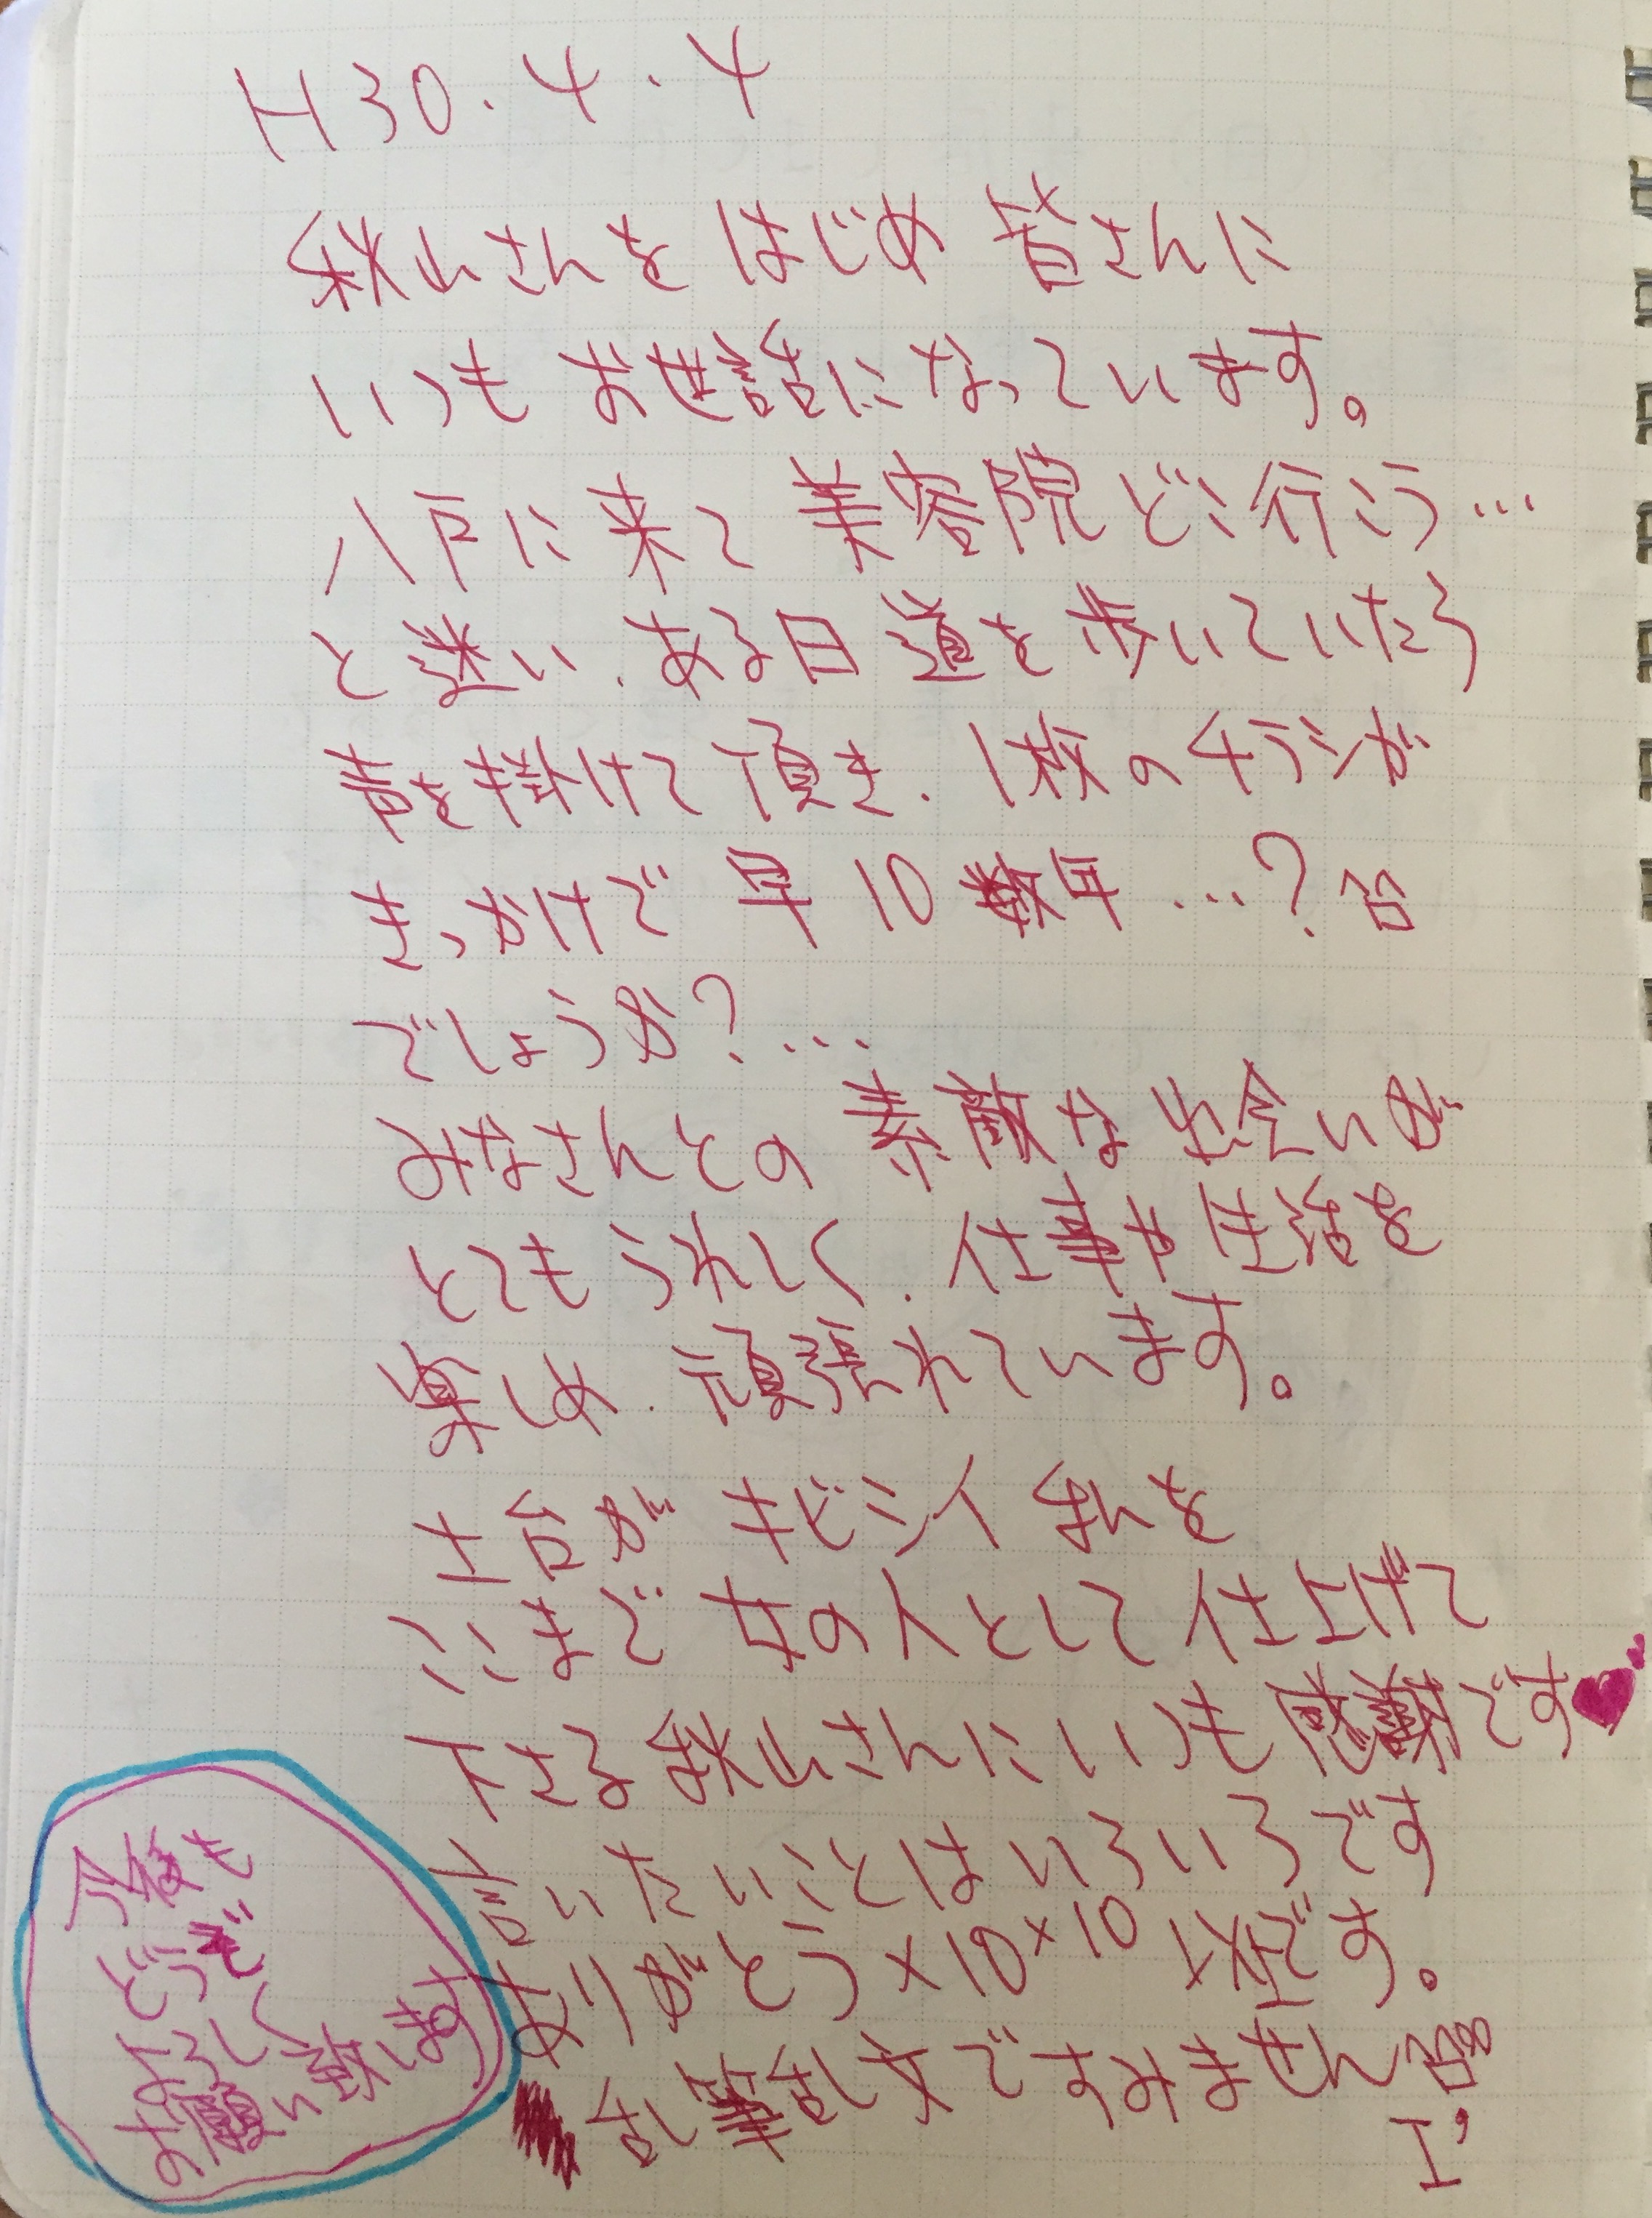 H30.4.4
秋山さんを はじめ 皆さんに
いつも お世話になっています。
八戸に 来て 美容院 どこ行こう…
と迷い、ある日 道を 歩いていたら
声を掛けて頂き、1枚のチラシが
きっかけで 早10数年…?
でしょうか?…
みなさんとの 素敵な出会いが
とてもうれしく、仕事や生活を
楽しめ、頑張れています。
土台が キビシイ 私を
ここまで 女の人として仕上げて
下さる秋山さんにいつも感謝です♥
言いたいことは いろいろです
ありがとう×10×10 以上です。
乱筆乱文ですみません
I'
今後も
どうぞ
よろしく
お願い致します